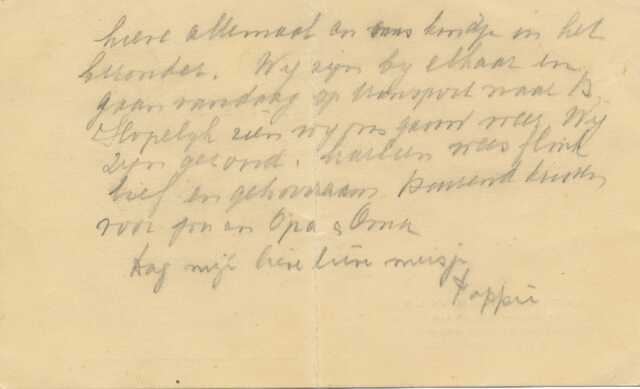 lieve allemaal en ons kindje in het
bezonder. Wij zijn bij elkaar en
gaan vandaag op transport naar B.
Hopelijk zien wij ons gauw weer. Wij
zijn gezond. wees flink
lief en gehoorzaam Duizend kussen
voor jou en Opa & Oma
Dag mijn lieve lieve meisje
Pappie